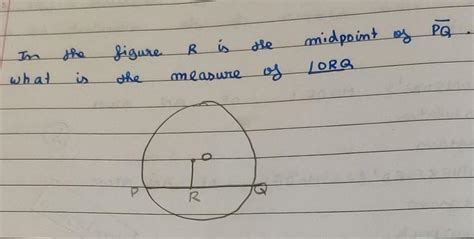 In the figure R is the midpoint of PQ.
what is the measure of ∠ORQ
O
P R Q